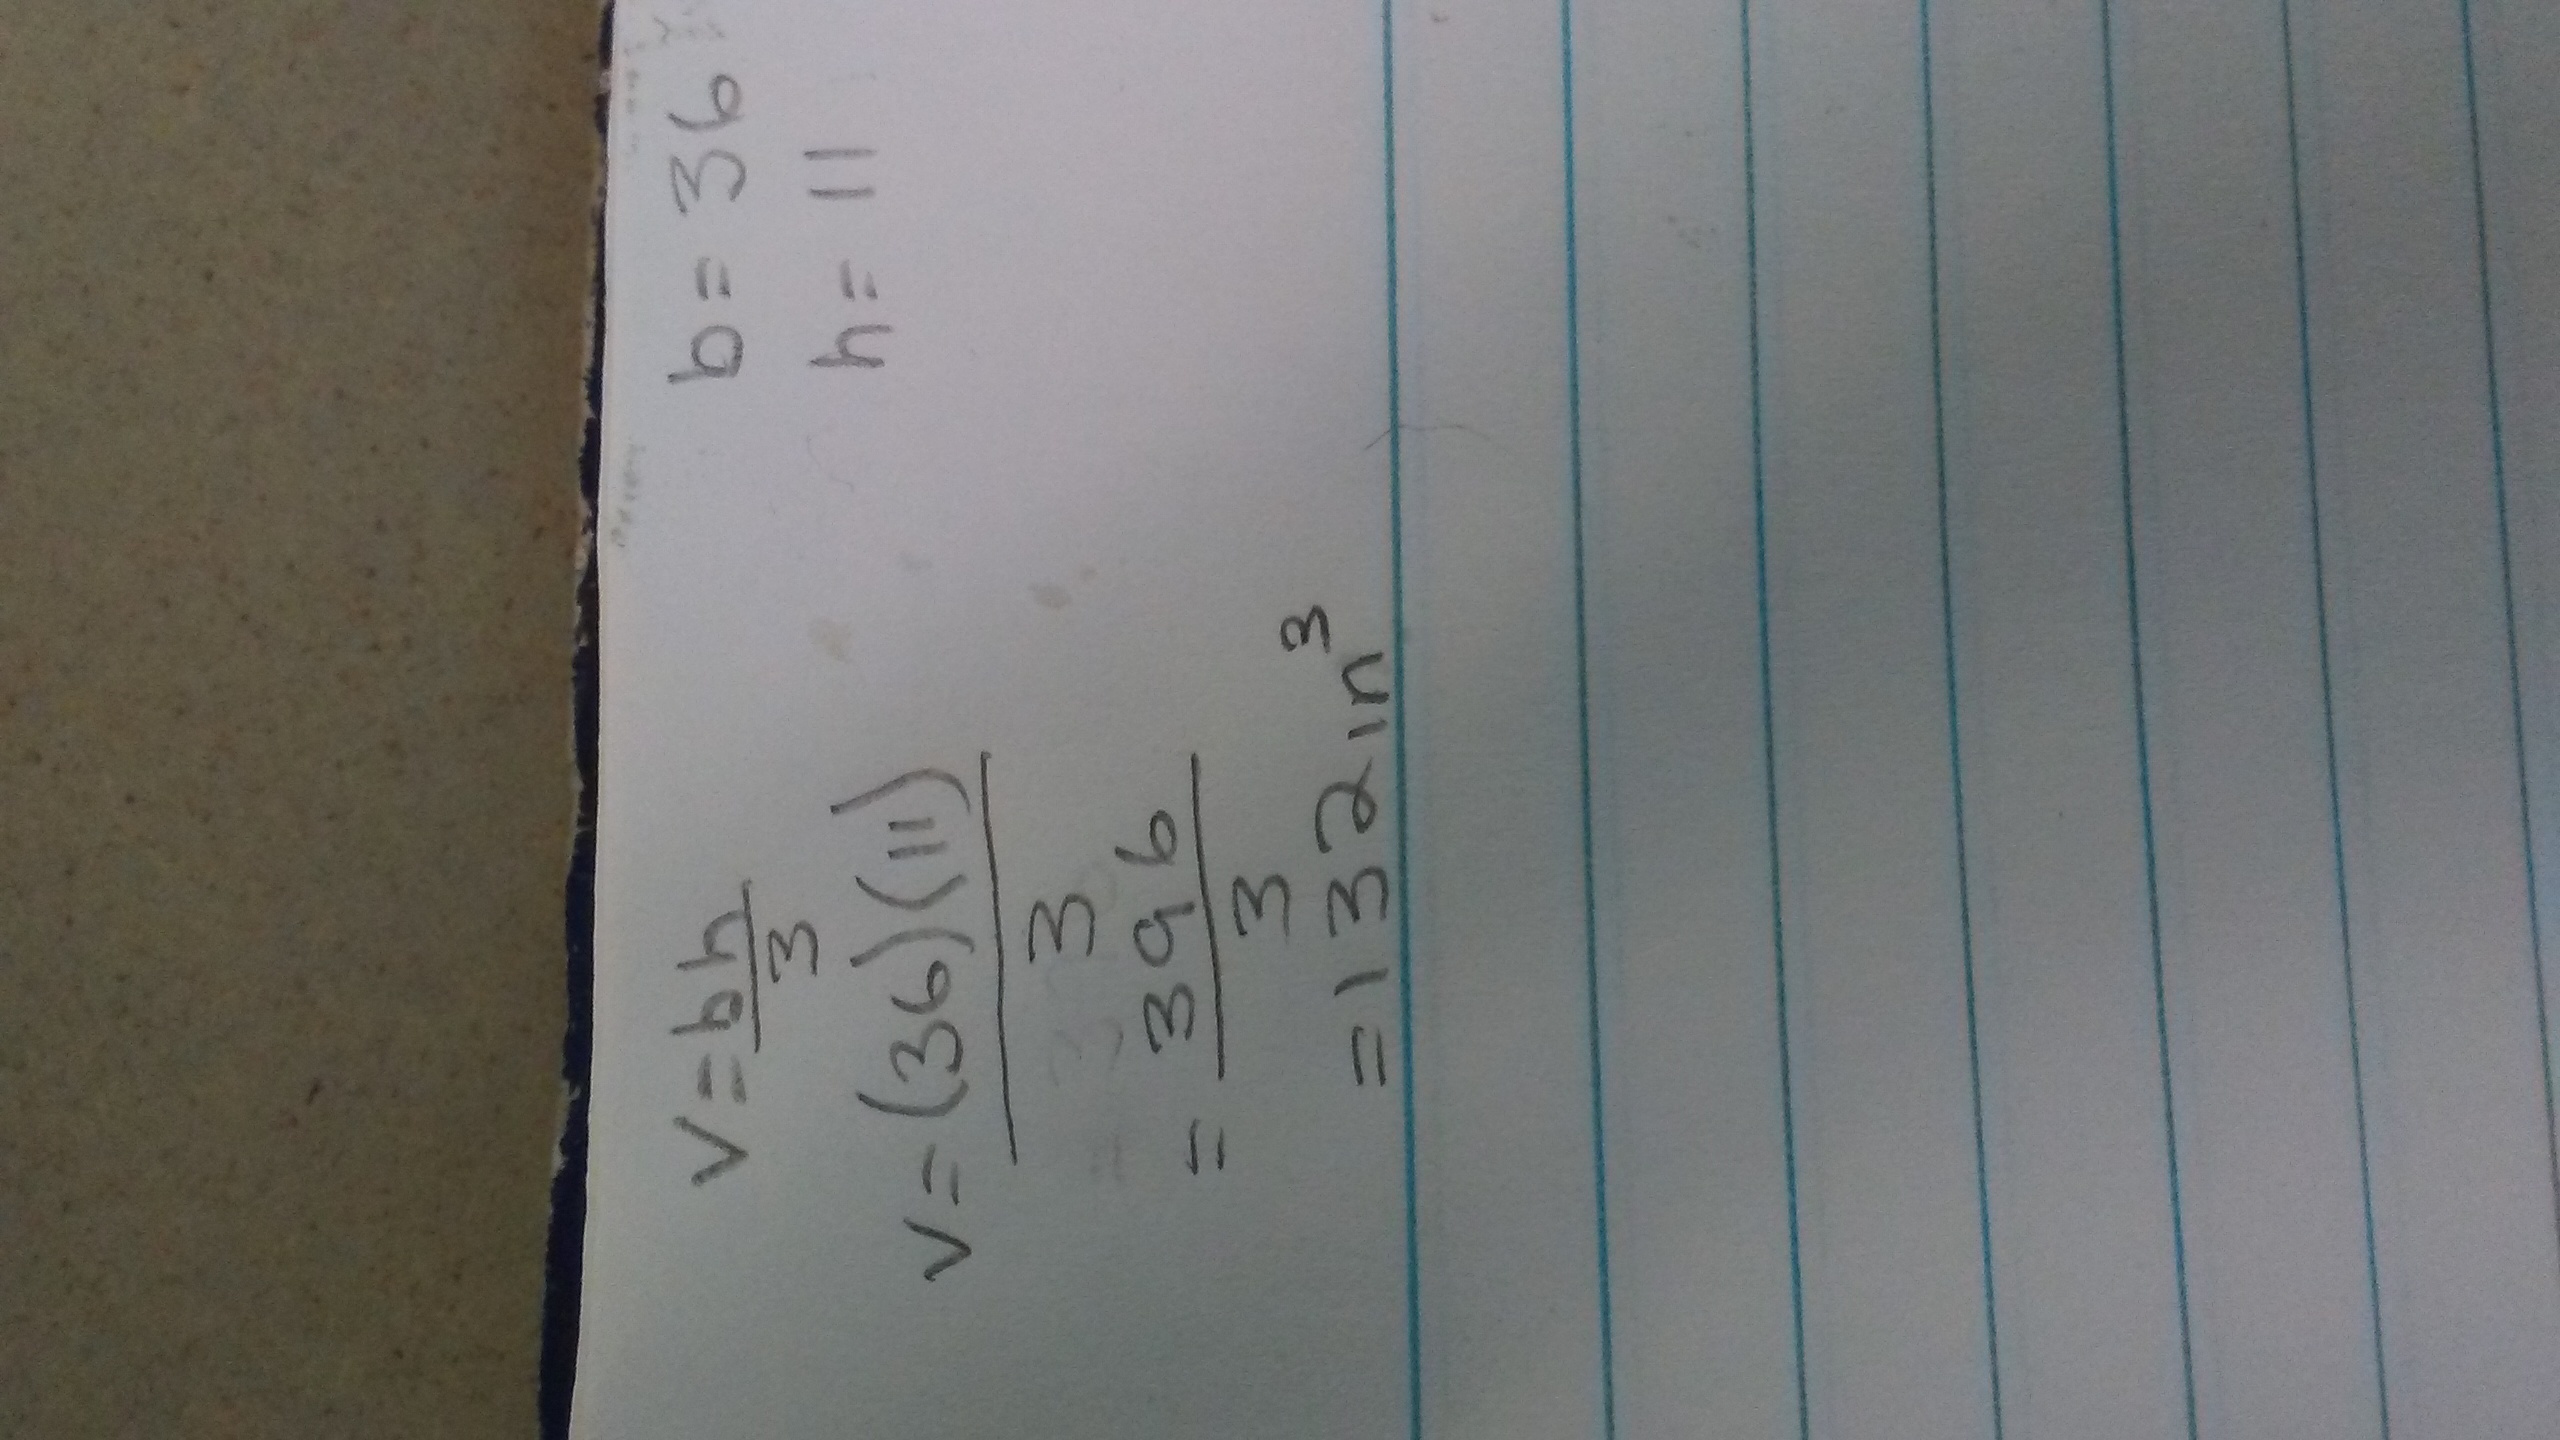 v = bh/3 b = 36
h = 11
v = (36)(11)/3
= 396/3
= 132 in³